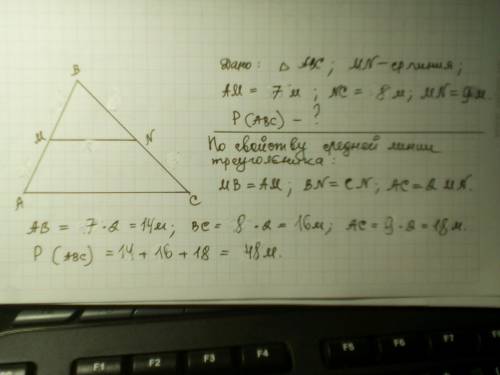 B
Дано: △ ABC; MN - ср линия;
AM = 7 м; NC = 8 м; MN = 9 м.
P (ABC) - ?
M
N
По свойству средней линии
треугольника:
MB = AM; BN = CN; AC = 2 MN.
A
C
AB = 7 · 2 = 14 м; BC = 8 · 2 = 16 м; AC = 9 · 2 = 18 м.
P (ABC) = 14 + 16 + 18 = 48 м.
F1 F2 F3 F4 F5 F6 F7